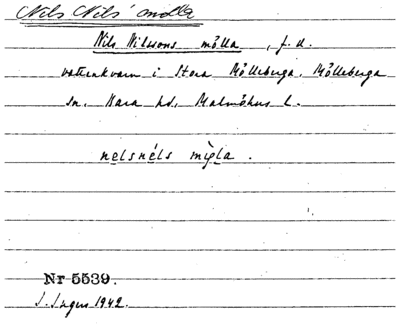 Nils Nils' mölla
Nils Nilssons mölla, f.d.
vattenkvarn i Stora Mölleberga, Mölleberga
sn. Bara hd. Malmöhus l.
nelsnéls mìgla.
Nr 5539.
S. Ingers 1942.